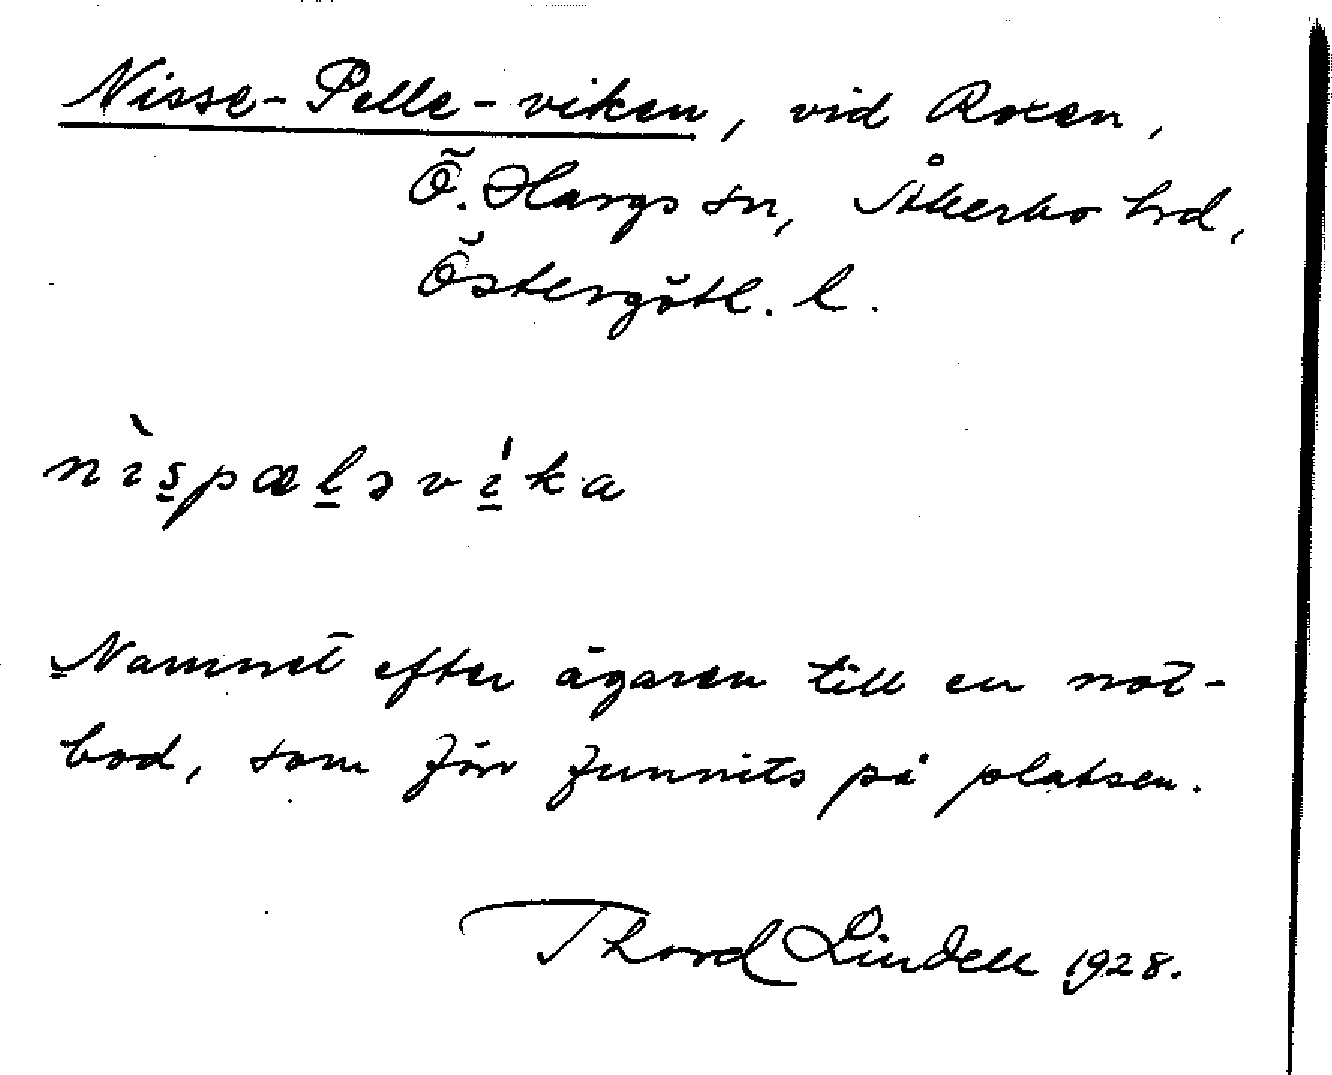 Nisse-Pelle-viken, vid Roxen,
Ö. Hargs sn, Åkerbo hrd,
Östergötl. l.
nìs̲pæl̲əvı̲́ka
Namnet efter ägaren till en not-
bod, som förr funnits på platsen.
Thord Lindell 1928.